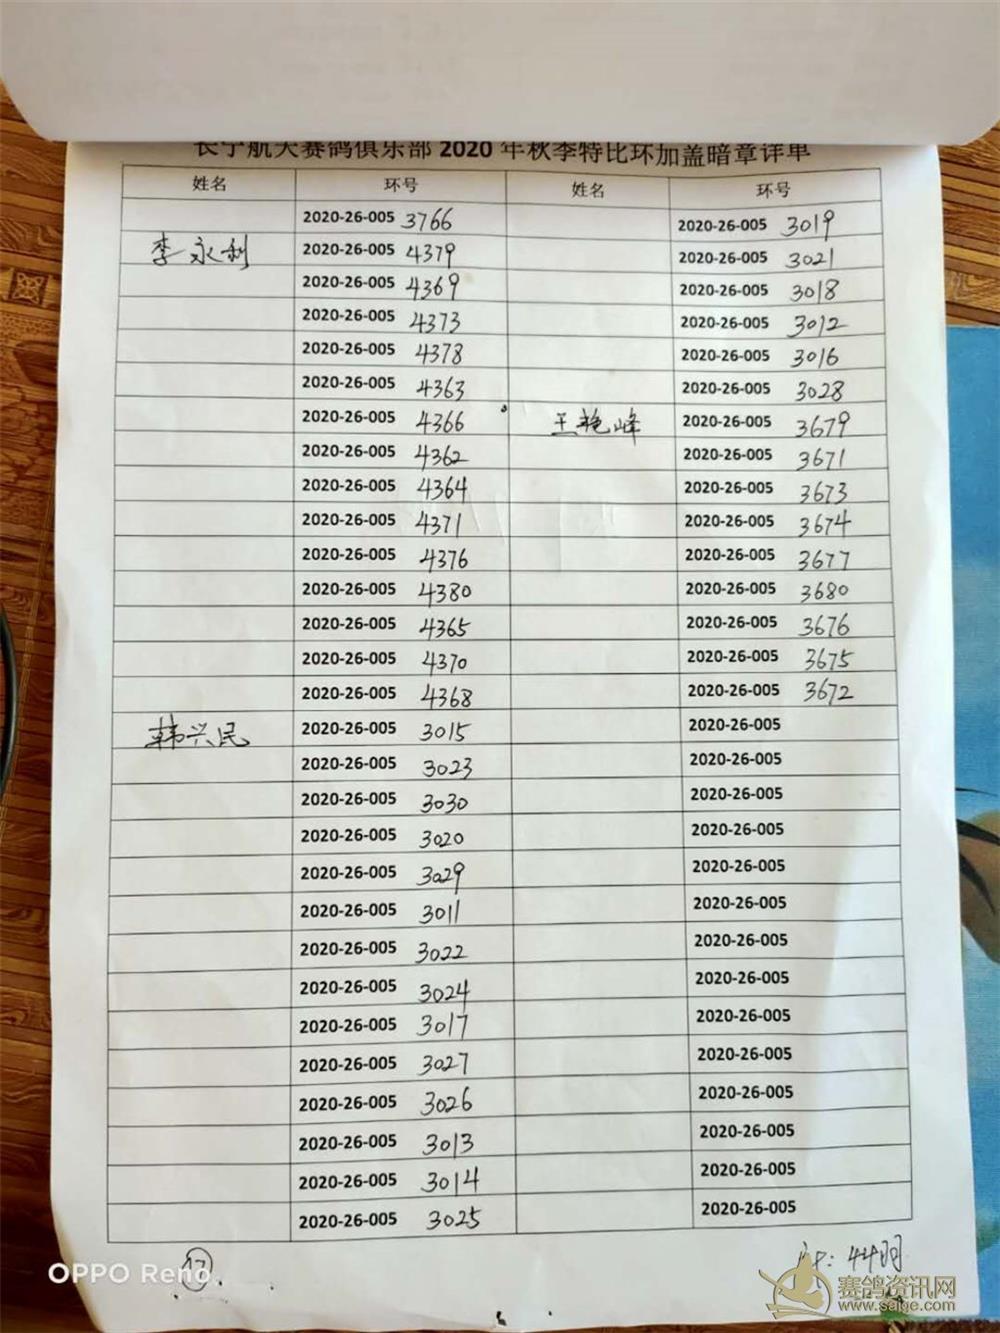 长宁航天赛鸽俱乐部 2020 年秋季特比环加盖暗章详单
姓名 环号 姓名 环号
2020-26-005 3766 2020-26-005 3019
李永利 2020-26-005 4379 2020-26-005 3021
2020-26-005 4369 2020-26-005 3018
2020-26-005 4373 2020-26-005 3012
2020-26-005 4378 2020-26-005 3016
2020-26-005 4363 2020-26-005 3028
2020-26-005 4366 王艳峰 2020-26-005 3679
2020-26-005 4362 2020-26-005 3671
2020-26-005 4364 2020-26-005 3673
2020-26-005 4371 2020-26-005 3674
2020-26-005 4376 2020-26-005 3677
2020-26-005 4380 2020-26-005 3680
2020-26-005 4365 2020-26-005 3676
2020-26-005 4370 2020-26-005 3675
2020-26-005 4368 2020-26-005 3672
韩兴民 2020-26-005 3015 2020-26-005
2020-26-005 3023 2020-26-005
2020-26-005 3030 2020-26-005
2020-26-005 3020 2020-26-005
2020-26-005 3029 2020-26-005
2020-26-005 3011 2020-26-005
2020-26-005 3022 2020-26-005
2020-26-005 3024 2020-26-005
2020-26-005 3017 2020-26-005
2020-26-005 3027 2020-26-005
2020-26-005 3026 2020-26-005
2020-26-005 3013 2020-26-005
2020-26-005 3014 2020-26-005
2020-26-005 3025 2020-26-005
44羽
OPPO Reno
赛鸽资讯网
www.saige.com